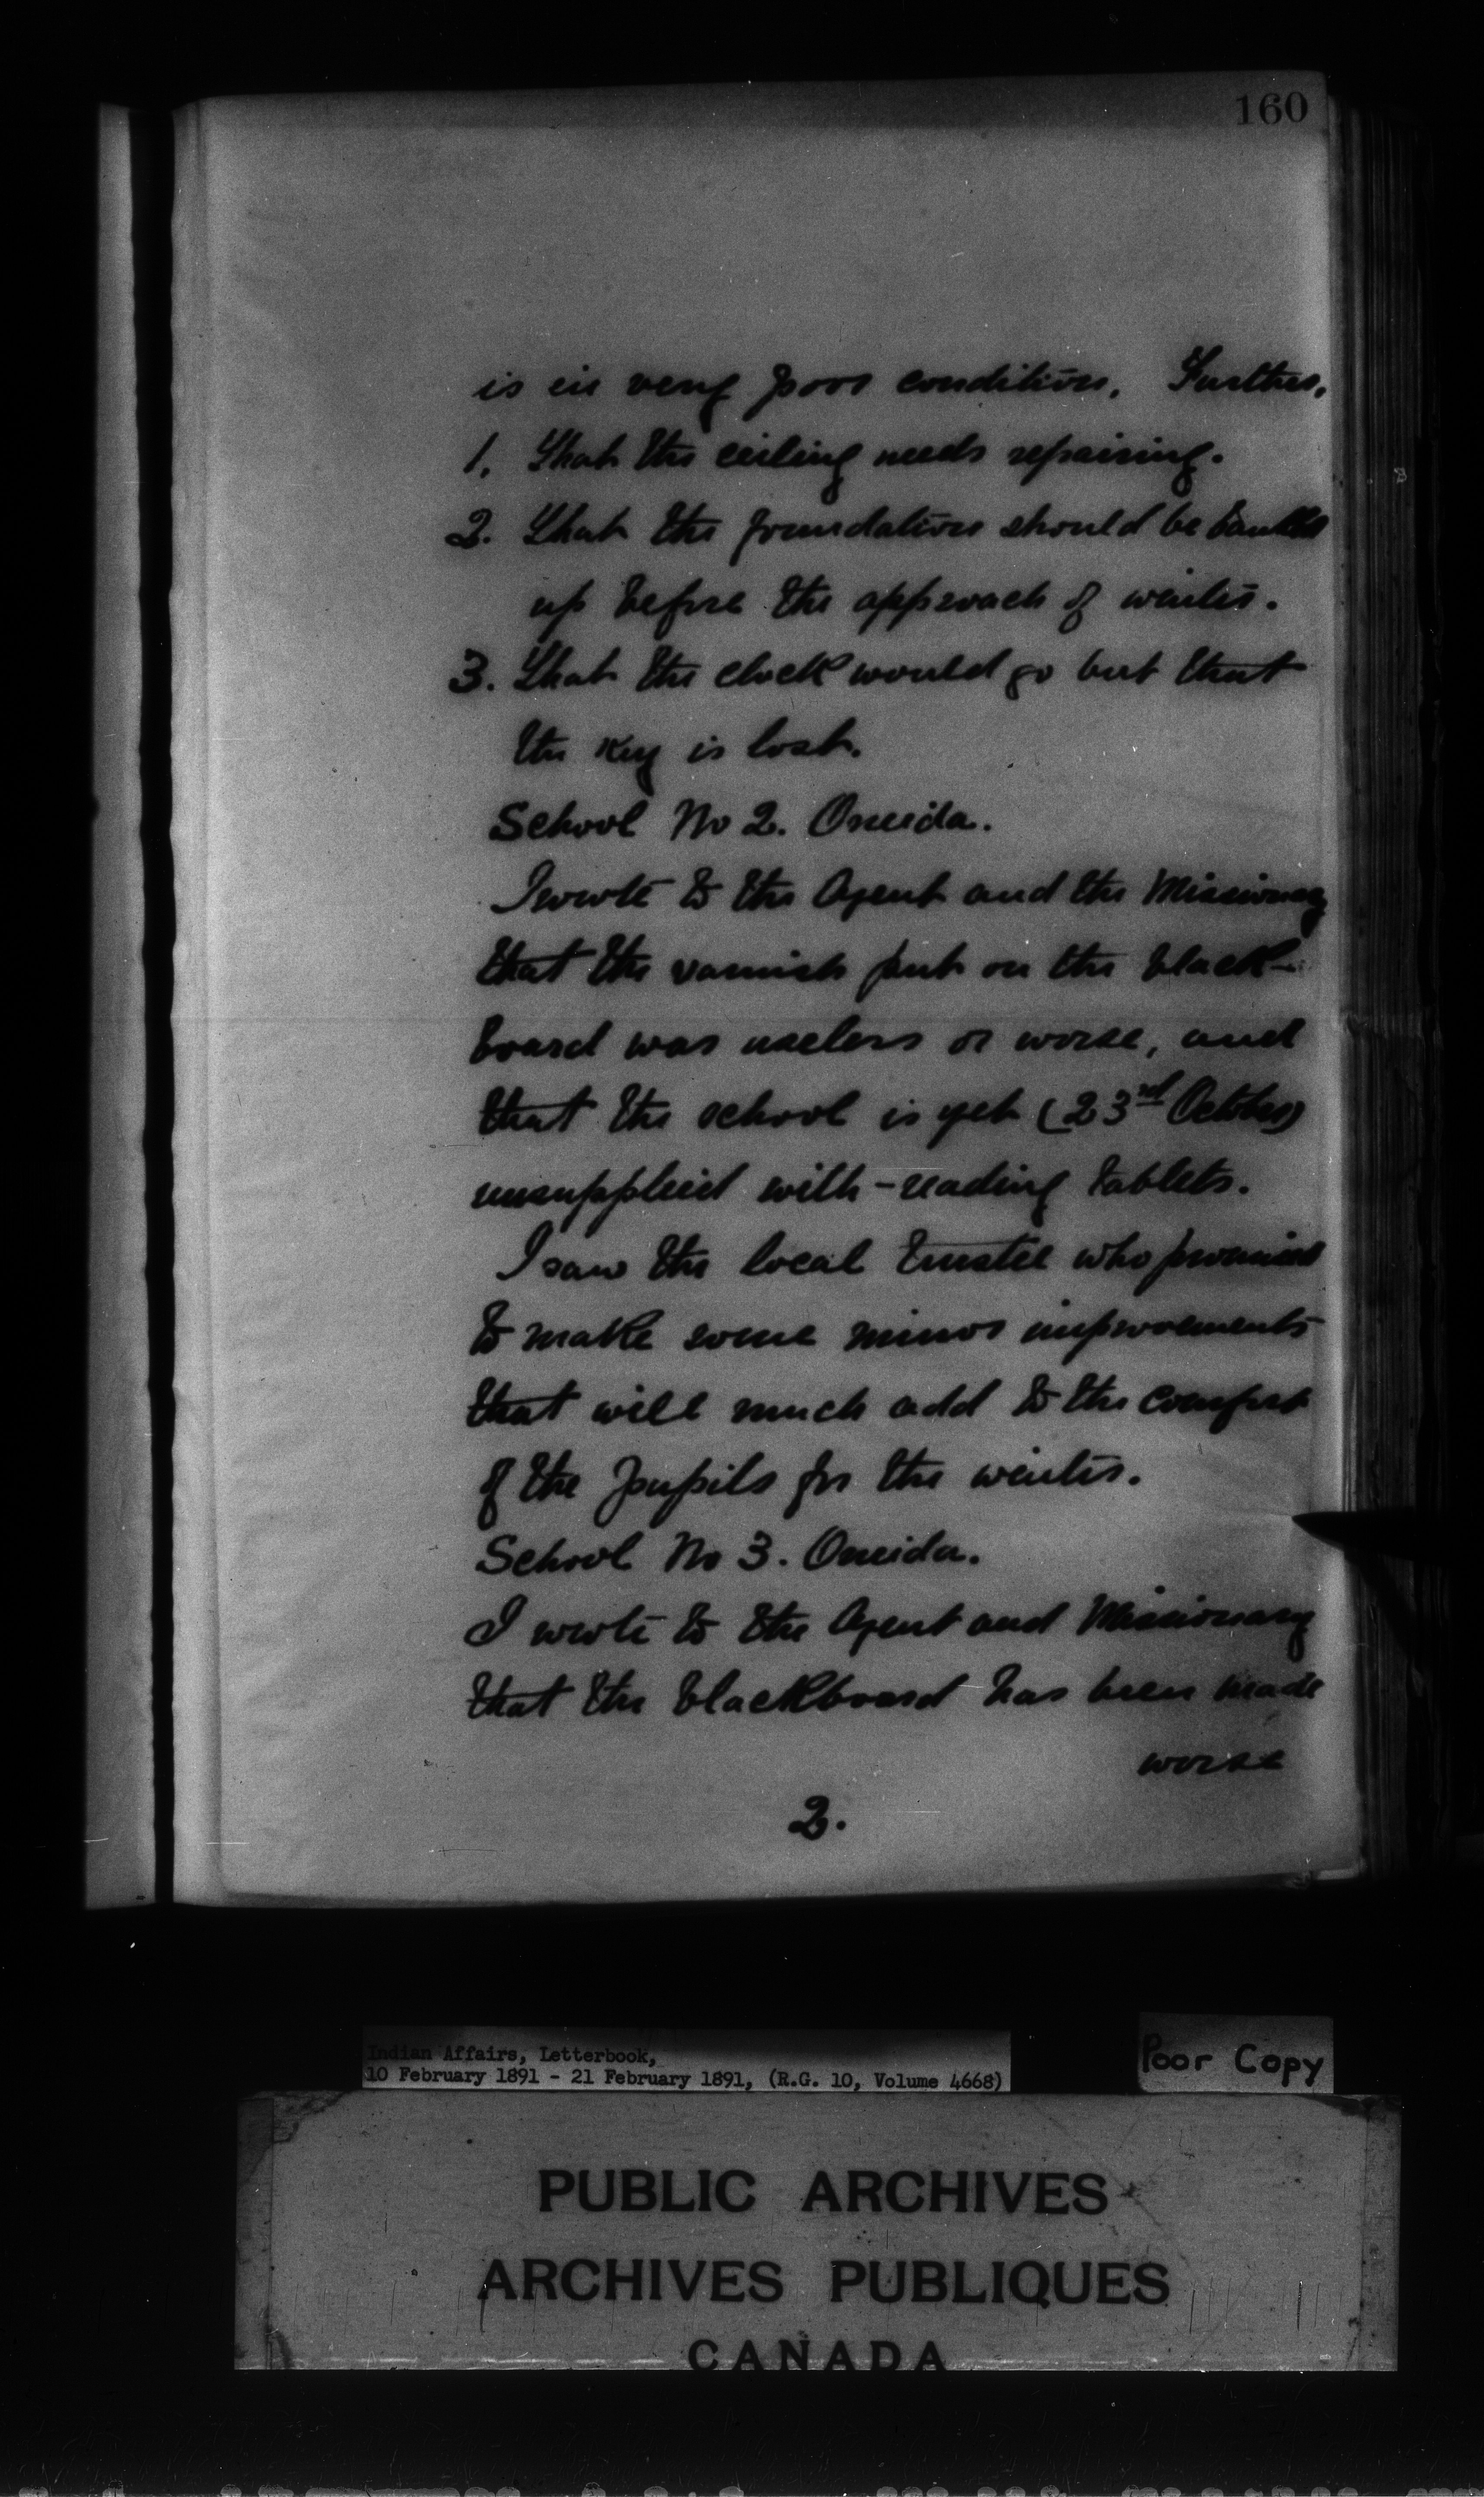 160
is in very poor condition. Further,
1. That the ceiling needs repairing.
2. That the foundation should be banked
up before the approach of winter.
3. That the clock would go but that
the key is lost.
School No 2. Oneida.
I wrote to the Agent and the Missionary
that the varnish put on the black-
board was useless or worse, and
that the school is yet (23rd October)
unsupplied with - reading tablets.
I saw the local trustee who promised
to make some minor improvements
that will much add to the comfort
of the pupils for the winter.
School No 3. Oneida.
I wrote to the Agent and Missionary
that the blackboard has been made
worse
2.
Indian Affairs, Letterbook,
10 February 1891 - 21 February 1891, (R.G. 10, Volume 4668)
Poor Copy
PUBLIC ARCHIVES
ARCHIVES PUBLIQUES
CANADA